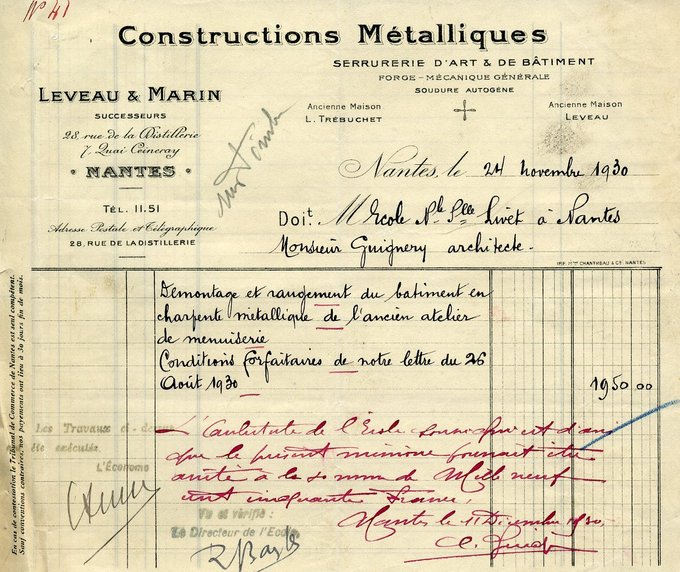 N° 41
Constructions Métalliques
SERRURERIE D'ART & DE BÂTIMENT
FORGE - MÉCANIQUE GÉNÉRALE
SOUDURE AUTOGÈNE
LEVEAU & MARIN
SUCCESSEURS
28, rue de la Distillerie
7, Quai Ceineray
NANTES
TÉL. 11.51
Adresse Postale et Télégraphique
28, RUE DE LA DISTILLERIE
Ancienne Maison
L. TRÉBUCHET
Ancienne Maison
LEVEAU
Nantes, le 24 novembre 1930
Doit M Ecole Nle Plle Livet à Nantes
Monsieur Guignery architecte.
IMP. CHANTREAU & Cie, NANTES
Démontage et rangement du bâtiment en
charpente métallique de l'ancien atelier
de menuiserie
Conditions forfaitaires de notre lettre du 26
Août 1930
1950 00
En cas de contestation, le Tribunal de Commerce de Nantes est seul compétent.
Sauf conventions contraires, nos payements ont lieu à 30 jours fin de mois.
Les Travaux ci-dessus
été exécutés
L'Économe
Vu et vérifié :
Le Directeur de l'Ecole
L'architecte de l'École soussigné est d'avis
que le présent mémoire pourrait être
arrêté à la somme de Mille neuf
cent cinquante francs.
Nantes le 11 Décembre 1930